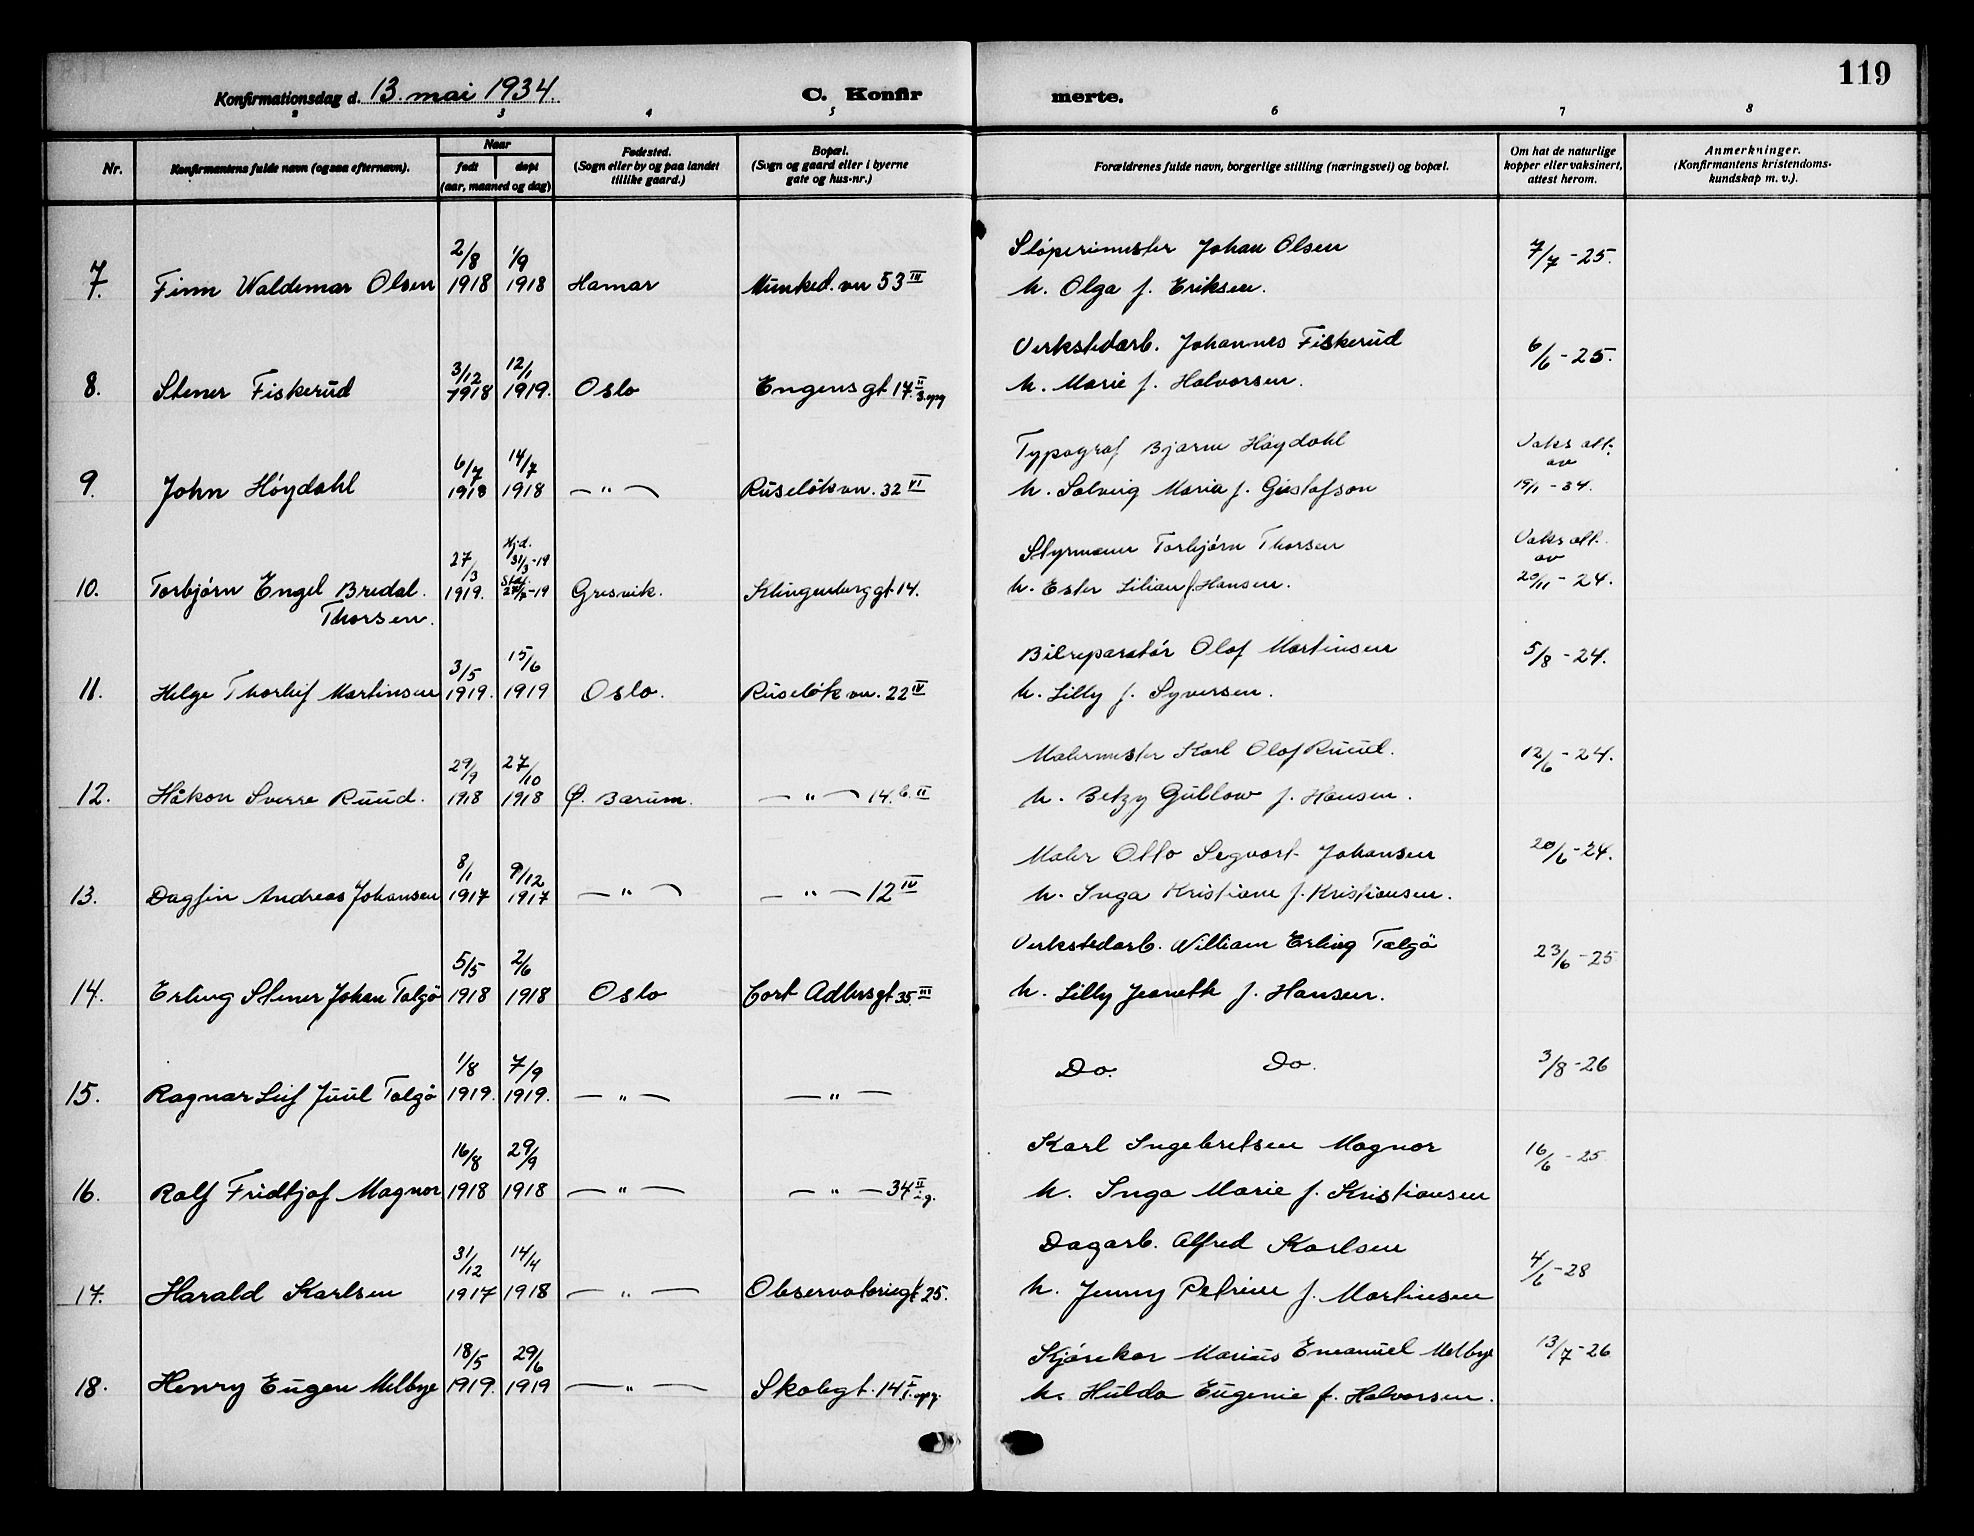 119
Konfirmationsdag d. 13. mai 1934.
C. Konfirmerte.
2 3 4 5 6 7 8
Nr.
Konfirmantens fulde navn (og saa efternavn).
Naar
født
døpt
(aar, maaned og dag)
Fødested.
(Sogn eller by og paa landet
tillike gaard.)
Bopæl.
(Sogn og gaard eller i byerne
gate og hus-nr.)
Forældrenes fulde navn, borgerlige stilling (næringsvei) og bopæl.
Om hat de naturlige
kopper eller vaksinert,
attest herom.
Anmerkninger.
(Konfirmantens kristendoms-
kundskap m. v.).
2/8 1/9 Støperimester Johan Olsen 7/7 - 25.
7. Finn Waldemar Olsen 1918 1918 Hamar Munked. vn 53 III h. Olga f. Eriksen.
3/12 12/1 Verkstedarb. Johannes Fiskerud 6/6 - 25.
8. Stener Fiskerud 1918 1919. Oslo Engensgt 17. II 3. opg h. Marie f. Halvorsen.
6/7 14/7 Typograf Bjarne Høydahl Vaks att. av
9. John Höydahl 1918 1918 — " — Ruseløkvn. 32 VI h. Solveig Maria f. Gustafson 19/1 - 34.
27/3 Hj.d. 31/3-19 Styrmann Torbjørn Thorsen Vaks att. av
10. Torbjørn Engel Bredal. 1919. Stad. 27/7-19 Gresvik. Klingenberggt 14. h. Ester Lilian f. Hansen. 20/11 - 24.
Thorsen.
3/5 15/6 Bilreparatør Olof Martinsen 5/8 - 24.
11. Helge Thorleif Martinsen 1919. 1919 Oslo. Ruseløkvn. 22 IV h. Lilly f. Syversen.
29/9 27/10 Malermester Karl Olaf Ruud. 12/6 - 24.
12. Håkon Sverre Ruud. 1918 1918 Ø. Bærum. — " — 14. b. II h. Betzy Gullow f. Hansen.
8/1 9/12 Maler Otto Segvart Johansen 20/6 - 24.
13. Dagfin Andreas Johansen 1917 1917 — " — — " — 12 IV h. Inga Kristiane f. Kristiansen.
5/5 2/6 Verkstedarb. William Erling Talgö 23/6 - 25
14. Erling Stener Johan Talgö 1918 1918 Oslo Cort Adlersgt 35 III h. Lilly Jeaneth f. Hansen.
1/8 7/9 Do. Do. 3/8 - 26
15. Ragnar Leif Juul Talgö 1919. 1919. — " — — " —
16/8 29/9 Karl Ingebretsen Magnor 16/6 - 25
16. Ralf Fridtjof Magnor 1918 1918 — " — — " — 34 II i. g. h. Inga Marie f. Kristiansen
31/12 14/4 Dagarb. Alfred Karlsen 4/6 - 28
17. Harald Karlsen 1917 1918 — " — Observatoriegt 25. h. Jenny Petrine f. Martinsen
18/5 29/6 Kjørekar Marius Emanuel Melbye 13/7 - 26
18. Henry Eugen Melbye 1919. 1919 — " — Skolegt. 14 I 1. opg. h. Hulda Eugenie f. Halvorsen.